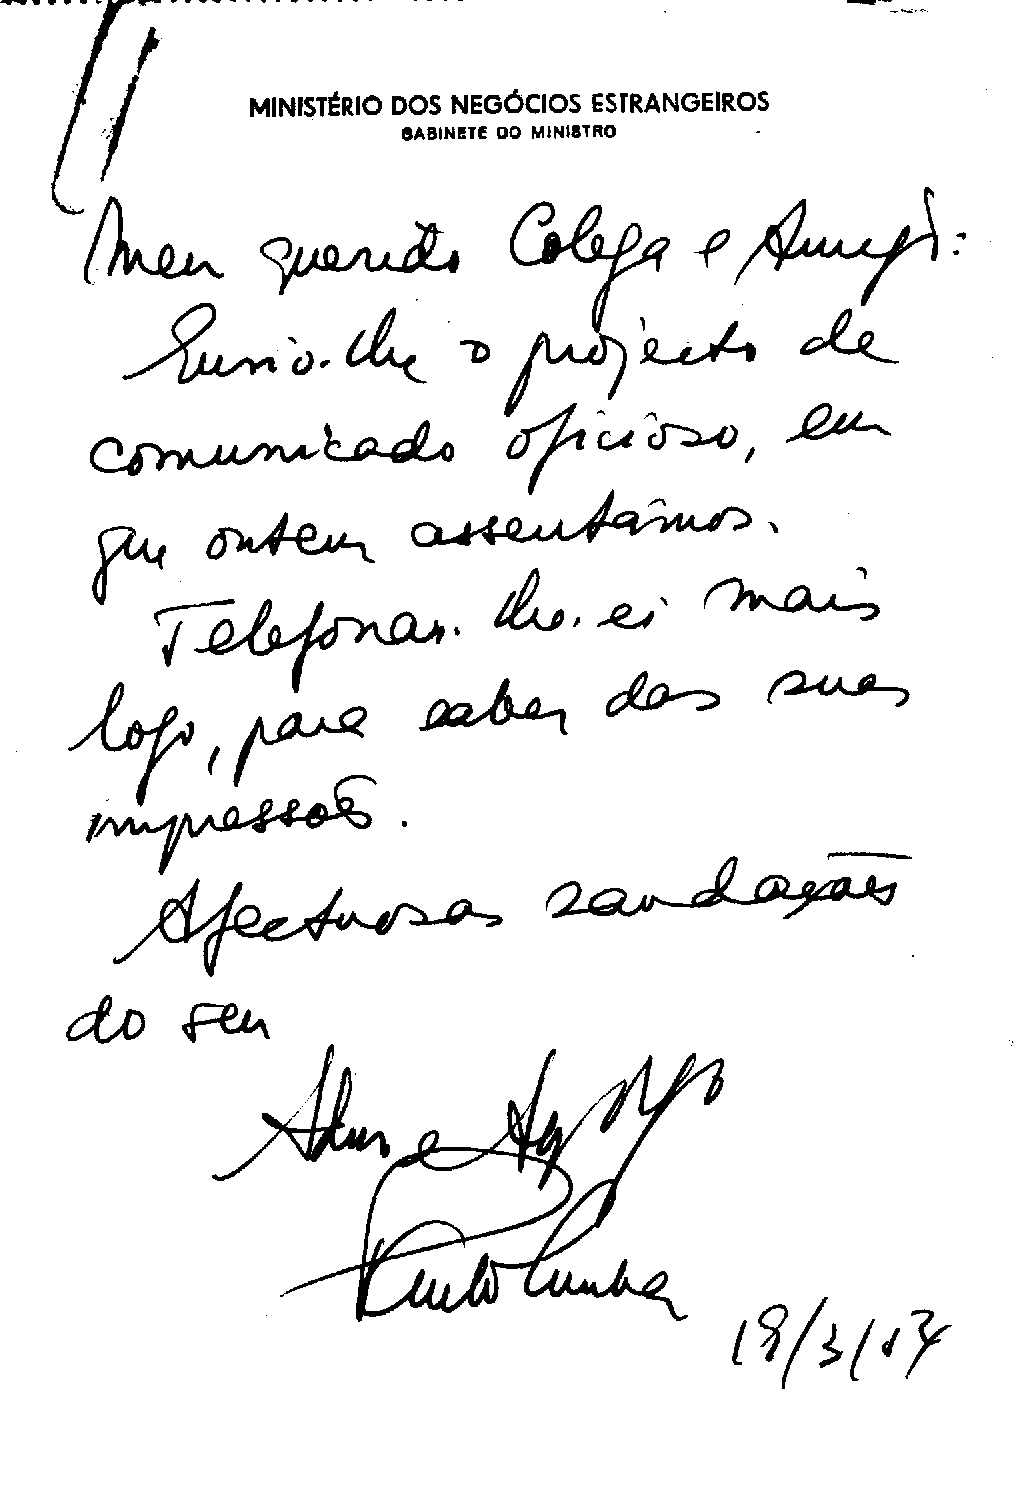 MINISTÉRIO DOS NEGÓCIOS ESTRANGEIROS
GABINETE DO MINISTRO
Meu querido Colega e Amigo:
Envio-lhe o projecto de
comunicado oficioso, em
que ontem assentámos.
Telefonar-lhe-ei mais
logo, para saber das suas
impressões.
Afectuosas saudações
do seu
Adm e Amigo
Paulo Cunha